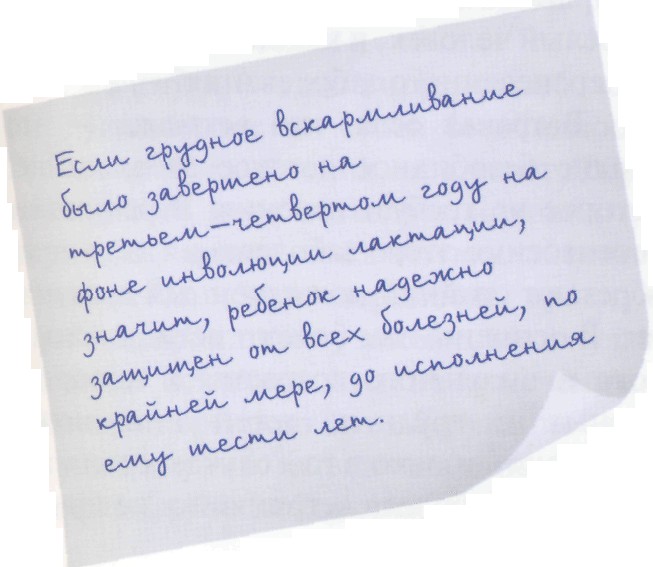 Если грудное вскармливание
было завершено на
третьем-четвертом году на
фоне инволюции лактации,
значит, ребенок надежно
защищен от всех болезней, по
крайней мере, до исполнения
ему шести лет.